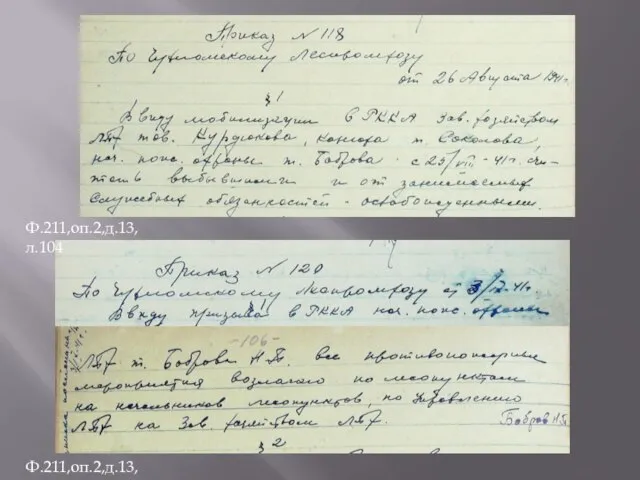 Приказ № 118
По Чухломскому Леспромхозу
от 26 Августа 1941 г.
§ 1
Ввиду мобилизации в РККА зав. хозяйством
ЛПХ тов. Курдюкова, конюха т. Соколова,
нач. пож. охраны т. Боброва с 25/VIII-41 г. счи-
тать выбывшими и от занимаемых
служебных обязанностей - освобожденными.
Ф.211,оп.2,д.13,
л.104
Приказ № 120
По Чухломскому Леспромхозу от 3/IX-41 г.
Ввиду призыва в РККА нач. пож. охраны
-106-
ЛПХ т. Боброва Н.П. все противопожарные
мероприятия возлагаю по лесопунктам
на начальников лесопунктов, по Управлению
ЛПХ на Зав. хозяйством ЛПХ.
Бобров Н.П.
§ 2
Ф.211,оп.2,д.13,